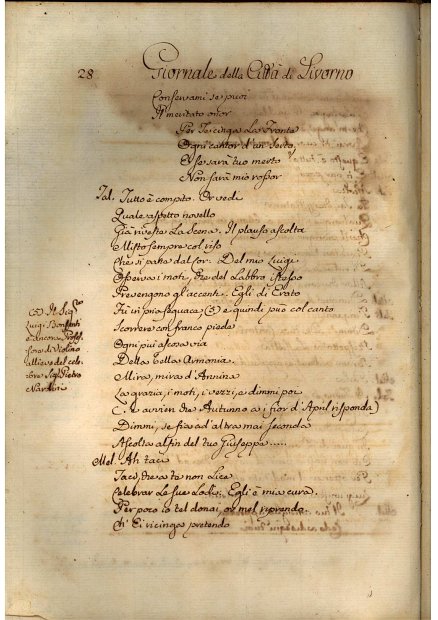 28
Giornale della Città di Livorno
Conservami se puoi
Il meritato onor
Per Te cinga La Fronte
Ogni cantor d'un serto,
E se sarà tuo merto
Non sarà mio rossor
Tal. Tutto è compito. Or vedi
Quale aspetto novello
Già riveste La Scena. Il plauso ascolta
Misto sempre col riso
Che si parte dal cor. Del mio Luigi
Osserva i moti, che del Labbro istesso
Prevengono gl'accenti. Egli di Erato
Fu un pria seguace, (3) e quindi può col canto
Scorrere con franco piede
Ogni più ascosa via
Della bella Armonia.
Mira, mira d'Annina
La grazia, i moti, i vezzi, e dimmi poi
(Se avvien che Autunno a i fior d'April risponda)
Dimmi, se fia ad altra mai seconda
Ascolta alfin del tuo Giuseppe.....
Mel. Ah taci
Taci, che a te non Lice
Celebrar Le sue Lodi. Egli è mia cura.
Per poco io tel donai, or mel riprendo.
Ch'Ei vicinga pretendo
(3) Il Sig.r
Luigi
è ancora Profes-
sore di Violino
allievo del cele-
bre Sig. Pietro
Nardini